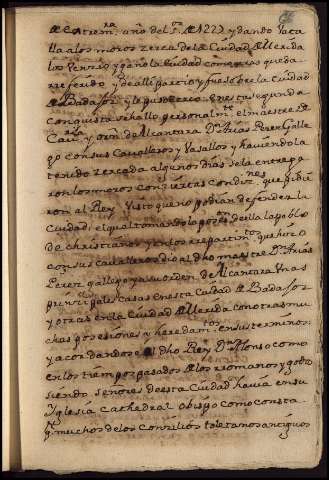 de Estrem.ra año del s.or de 1229 y dando Vata
lla a los moros zerca de la Ciudad de Merida
los Venzio y gano la Ciudad como arriva queda
referido y de alli partio y fue sobre la Ciudad
de Badajoz y le puso cerco. en esta segunda
conquista se hallo personalm.te el maestre de
Cav.ria y orn de Alcantara Dn Arias Perez Galle
go con sus Cavalleros y Vasallos y haviendola
tenido zercada algunos dias se la entrega
ron los moros con ziertas Condiz.nes que pidie
ron al Rey Visto que no podian defender la
Ciudad; el qual tomando la poses.on de ella la poblo
de christianos y en los repartim.tos que hizo
con sus cavalleros dio al dho maestre Dn Arias
Perez gallego y a su orden de Alcantara Unas
prinzipales casas en esta Ciudad de Badajoz
y otras en la Ciudad de Merida con otras mu
chas posesiones y heredam.tos en sus terminos
y acordandose el dho Rey Dn Alonso como
en los tiempos pasados de los romanos y godos
siendo señores de esta Ciudad havia en su
Yglesia Cathedral obispo como consta
pr muchos de los Conzilios toletanos antiguos